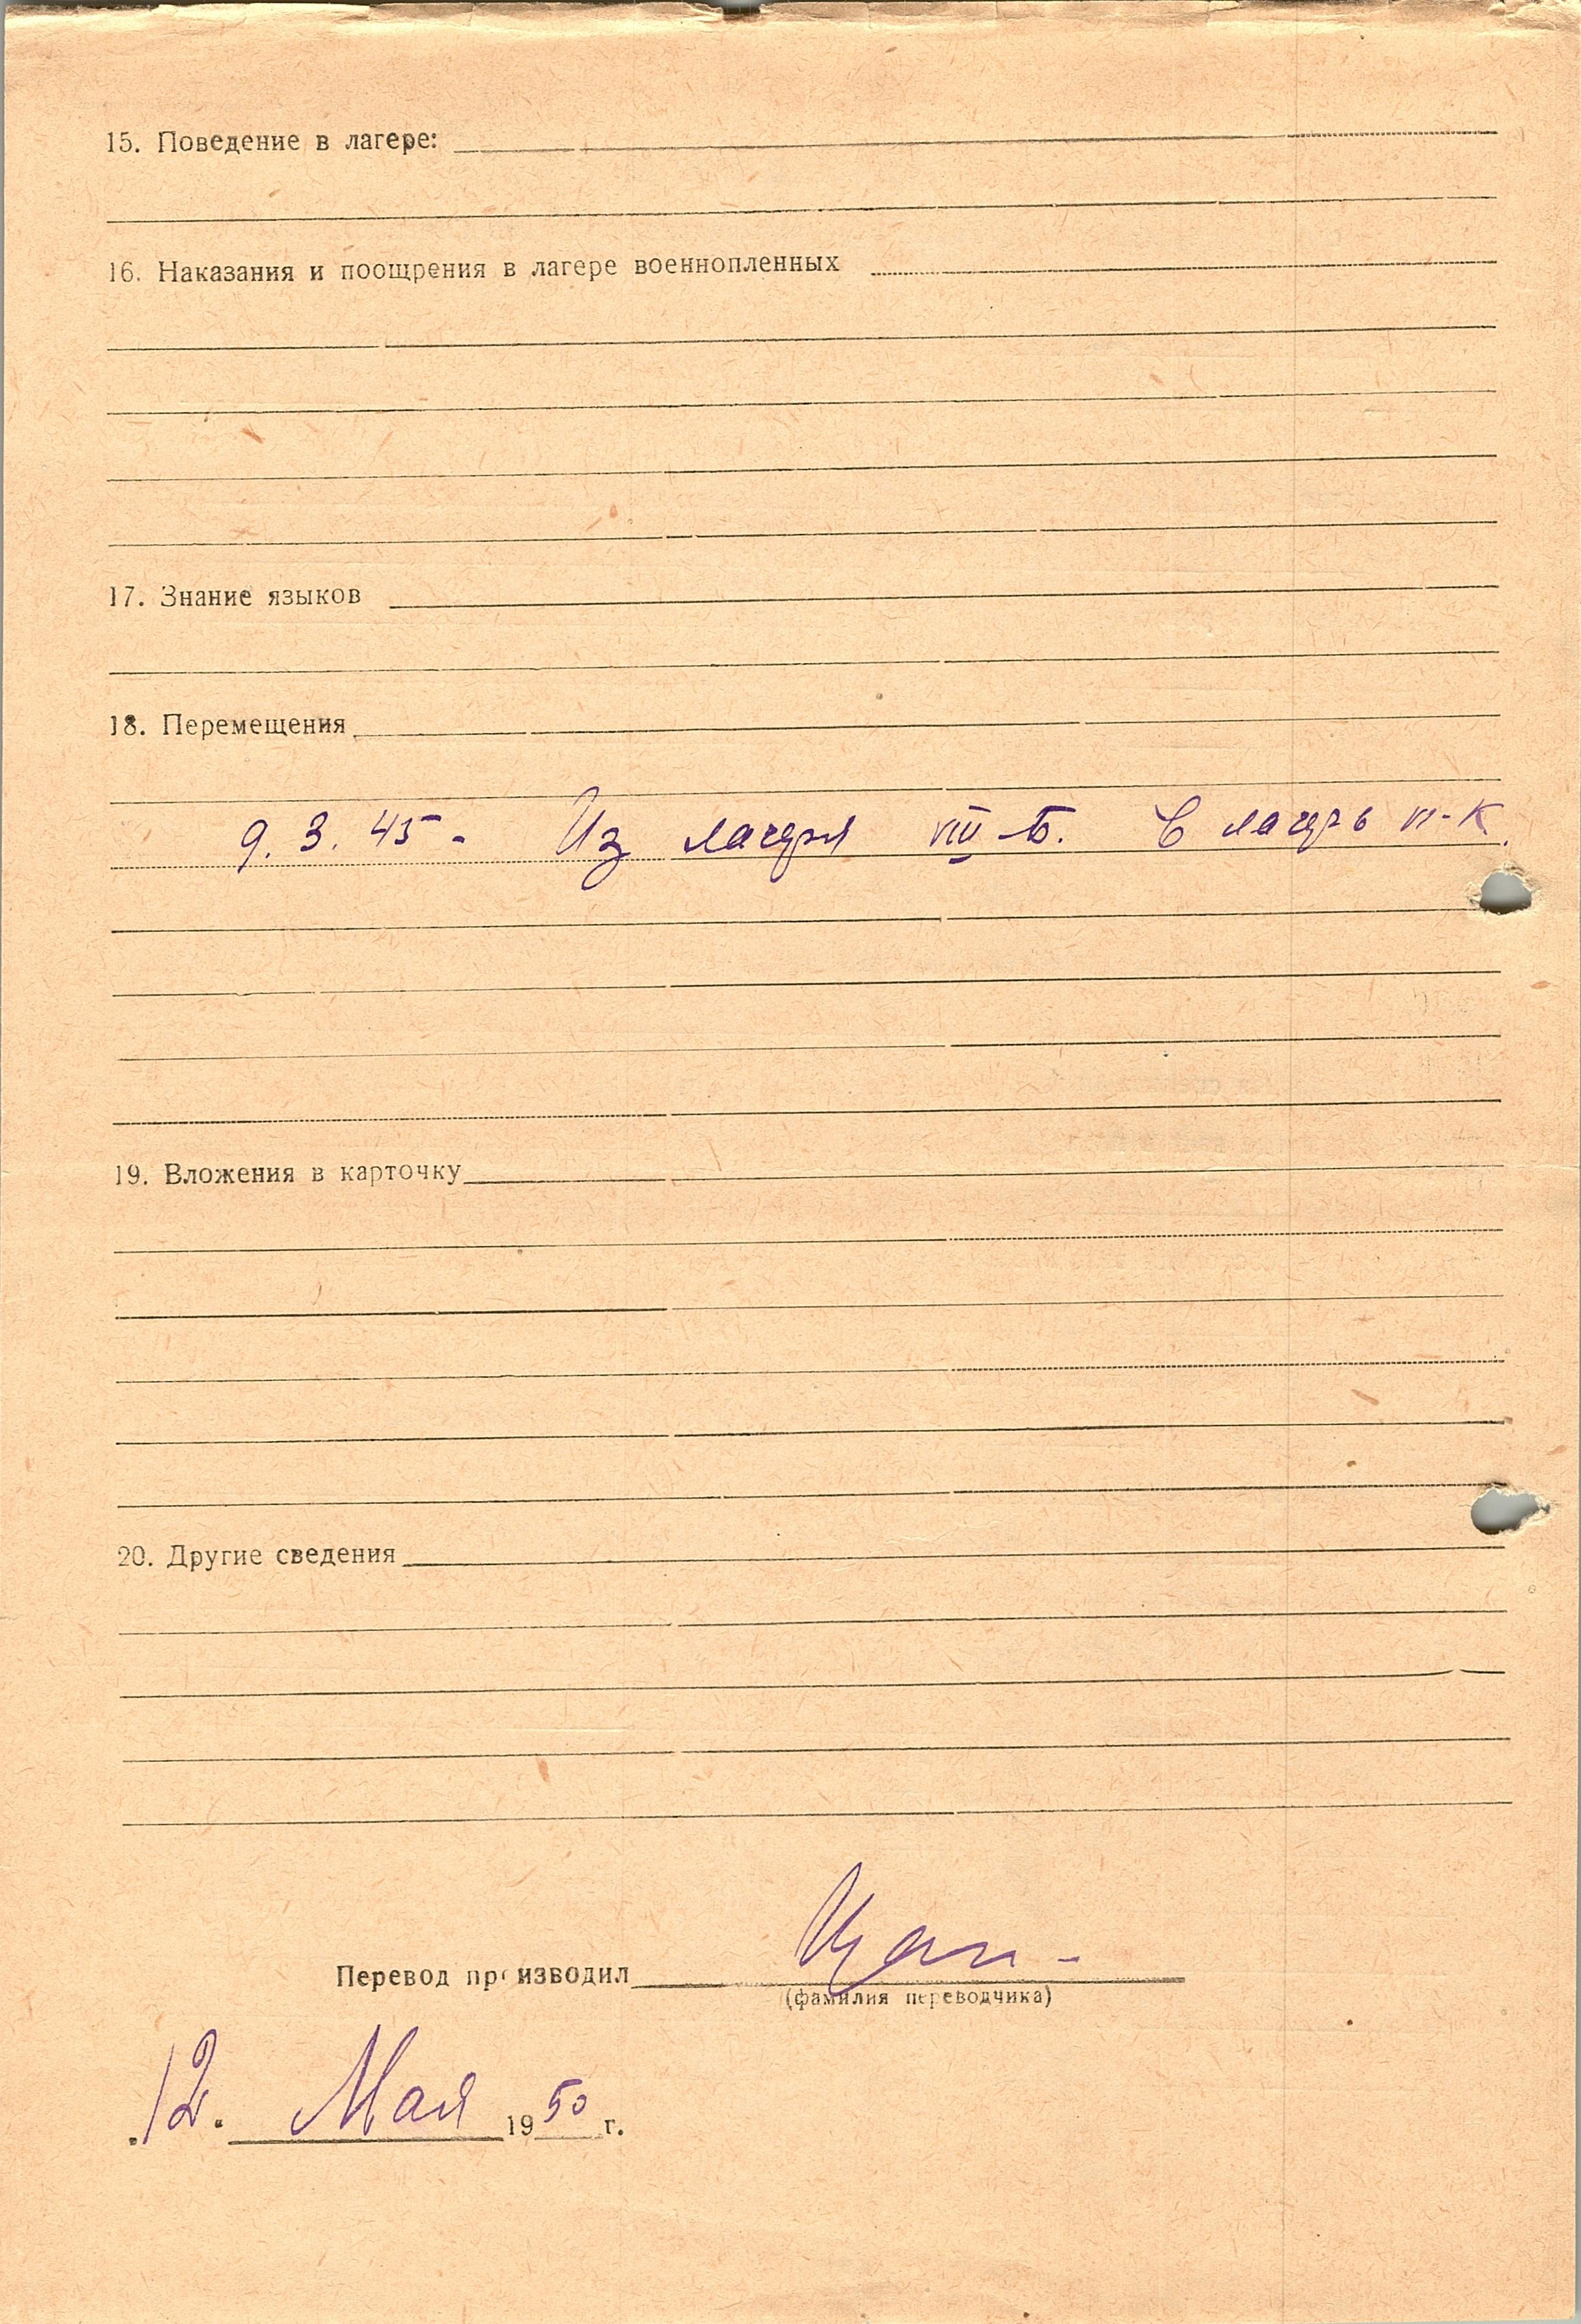 15. Поведение в лагере:
16. Наказания и поощрения в лагере военнопленных
17. Знание языков
18. Перемещения
9. 3. 45 - Из лагеря VIII-Б. в лагерь VI-К
19. Вложения в карточку
20. Другие сведения
Перевод производил
(фамилия переводчика)
12. Мая 1950 г.